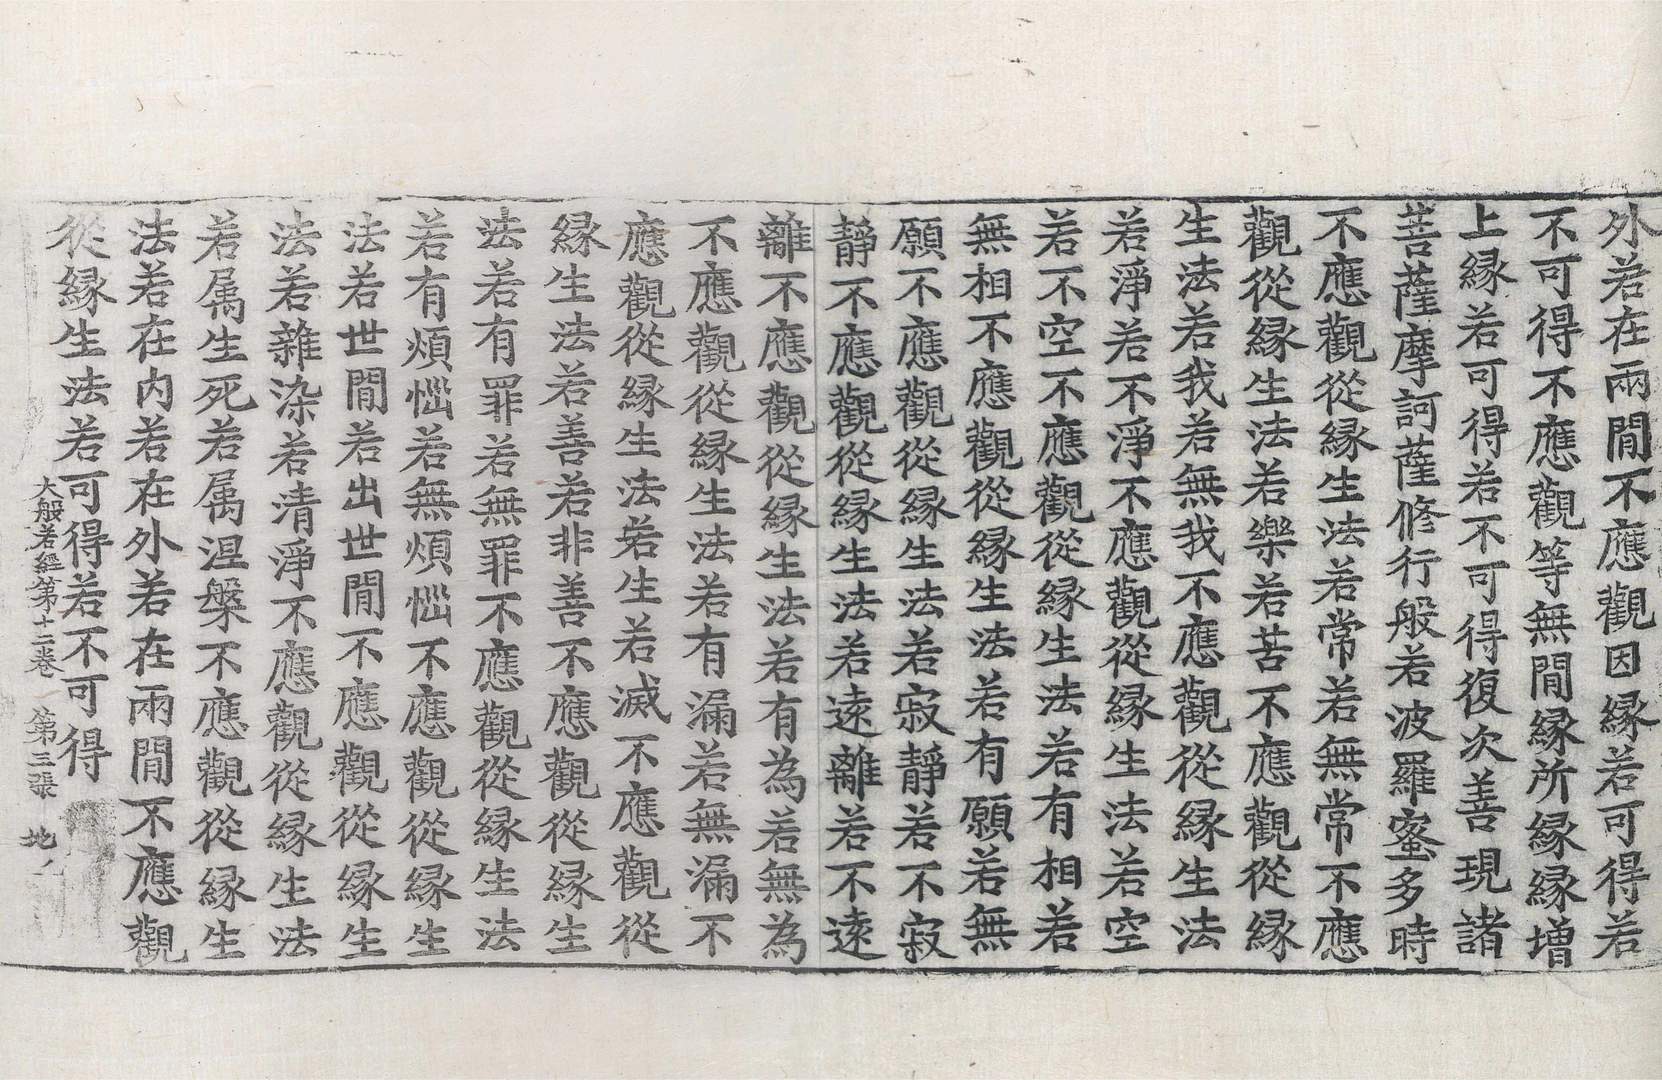 外若在兩間不應觀因縁若可得若
不可得不應觀等無間縁所縁縁增
上縁若可得若不可得復次善現諸
菩薩摩訶薩修行般若波羅蜜多時
不應觀從縁生法若常若無常不應
觀從縁生法若樂若苦不應觀從縁
生法若我若無我不應觀從縁生法
若淨若不淨不應觀從縁生法若空
若不空不應觀從縁生法若有相若
無相不應觀從縁生法若有願若無
願不應觀從縁生法若寂靜若不寂
靜不應觀從縁生法若遠離若不遠
離不應觀從縁生法若有為若無為
不應觀從縁生法若有漏若無漏不
應觀從縁生法若生若滅不應觀從
縁生法若善若非善不應觀從縁生
法若有罪若無罪不應觀從縁生法
若有煩惱若無煩惱不應觀從縁生
法若世間若出世間不應觀從縁生
法若雜染若清淨不應觀從縁生法
若属生死若属涅槃不應觀從縁生
法若在内若在外若在兩間不應觀
從縁生法若可得若不可得
大般若經第十二卷 第三張 地